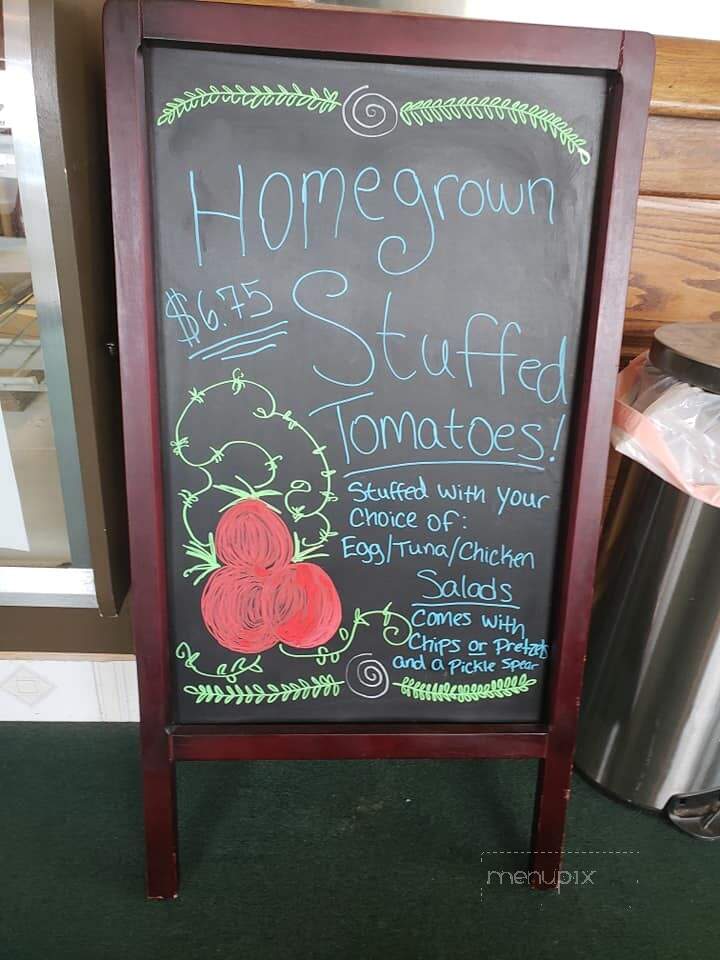 Homegrown
$6.75
Stuffed
Tomatoes!
Stuffed with your
Choice of:
Egg/Tuna/Chicken
Salads
Comes with
Chips or Pretzels
and a Pickle Spear
menupix